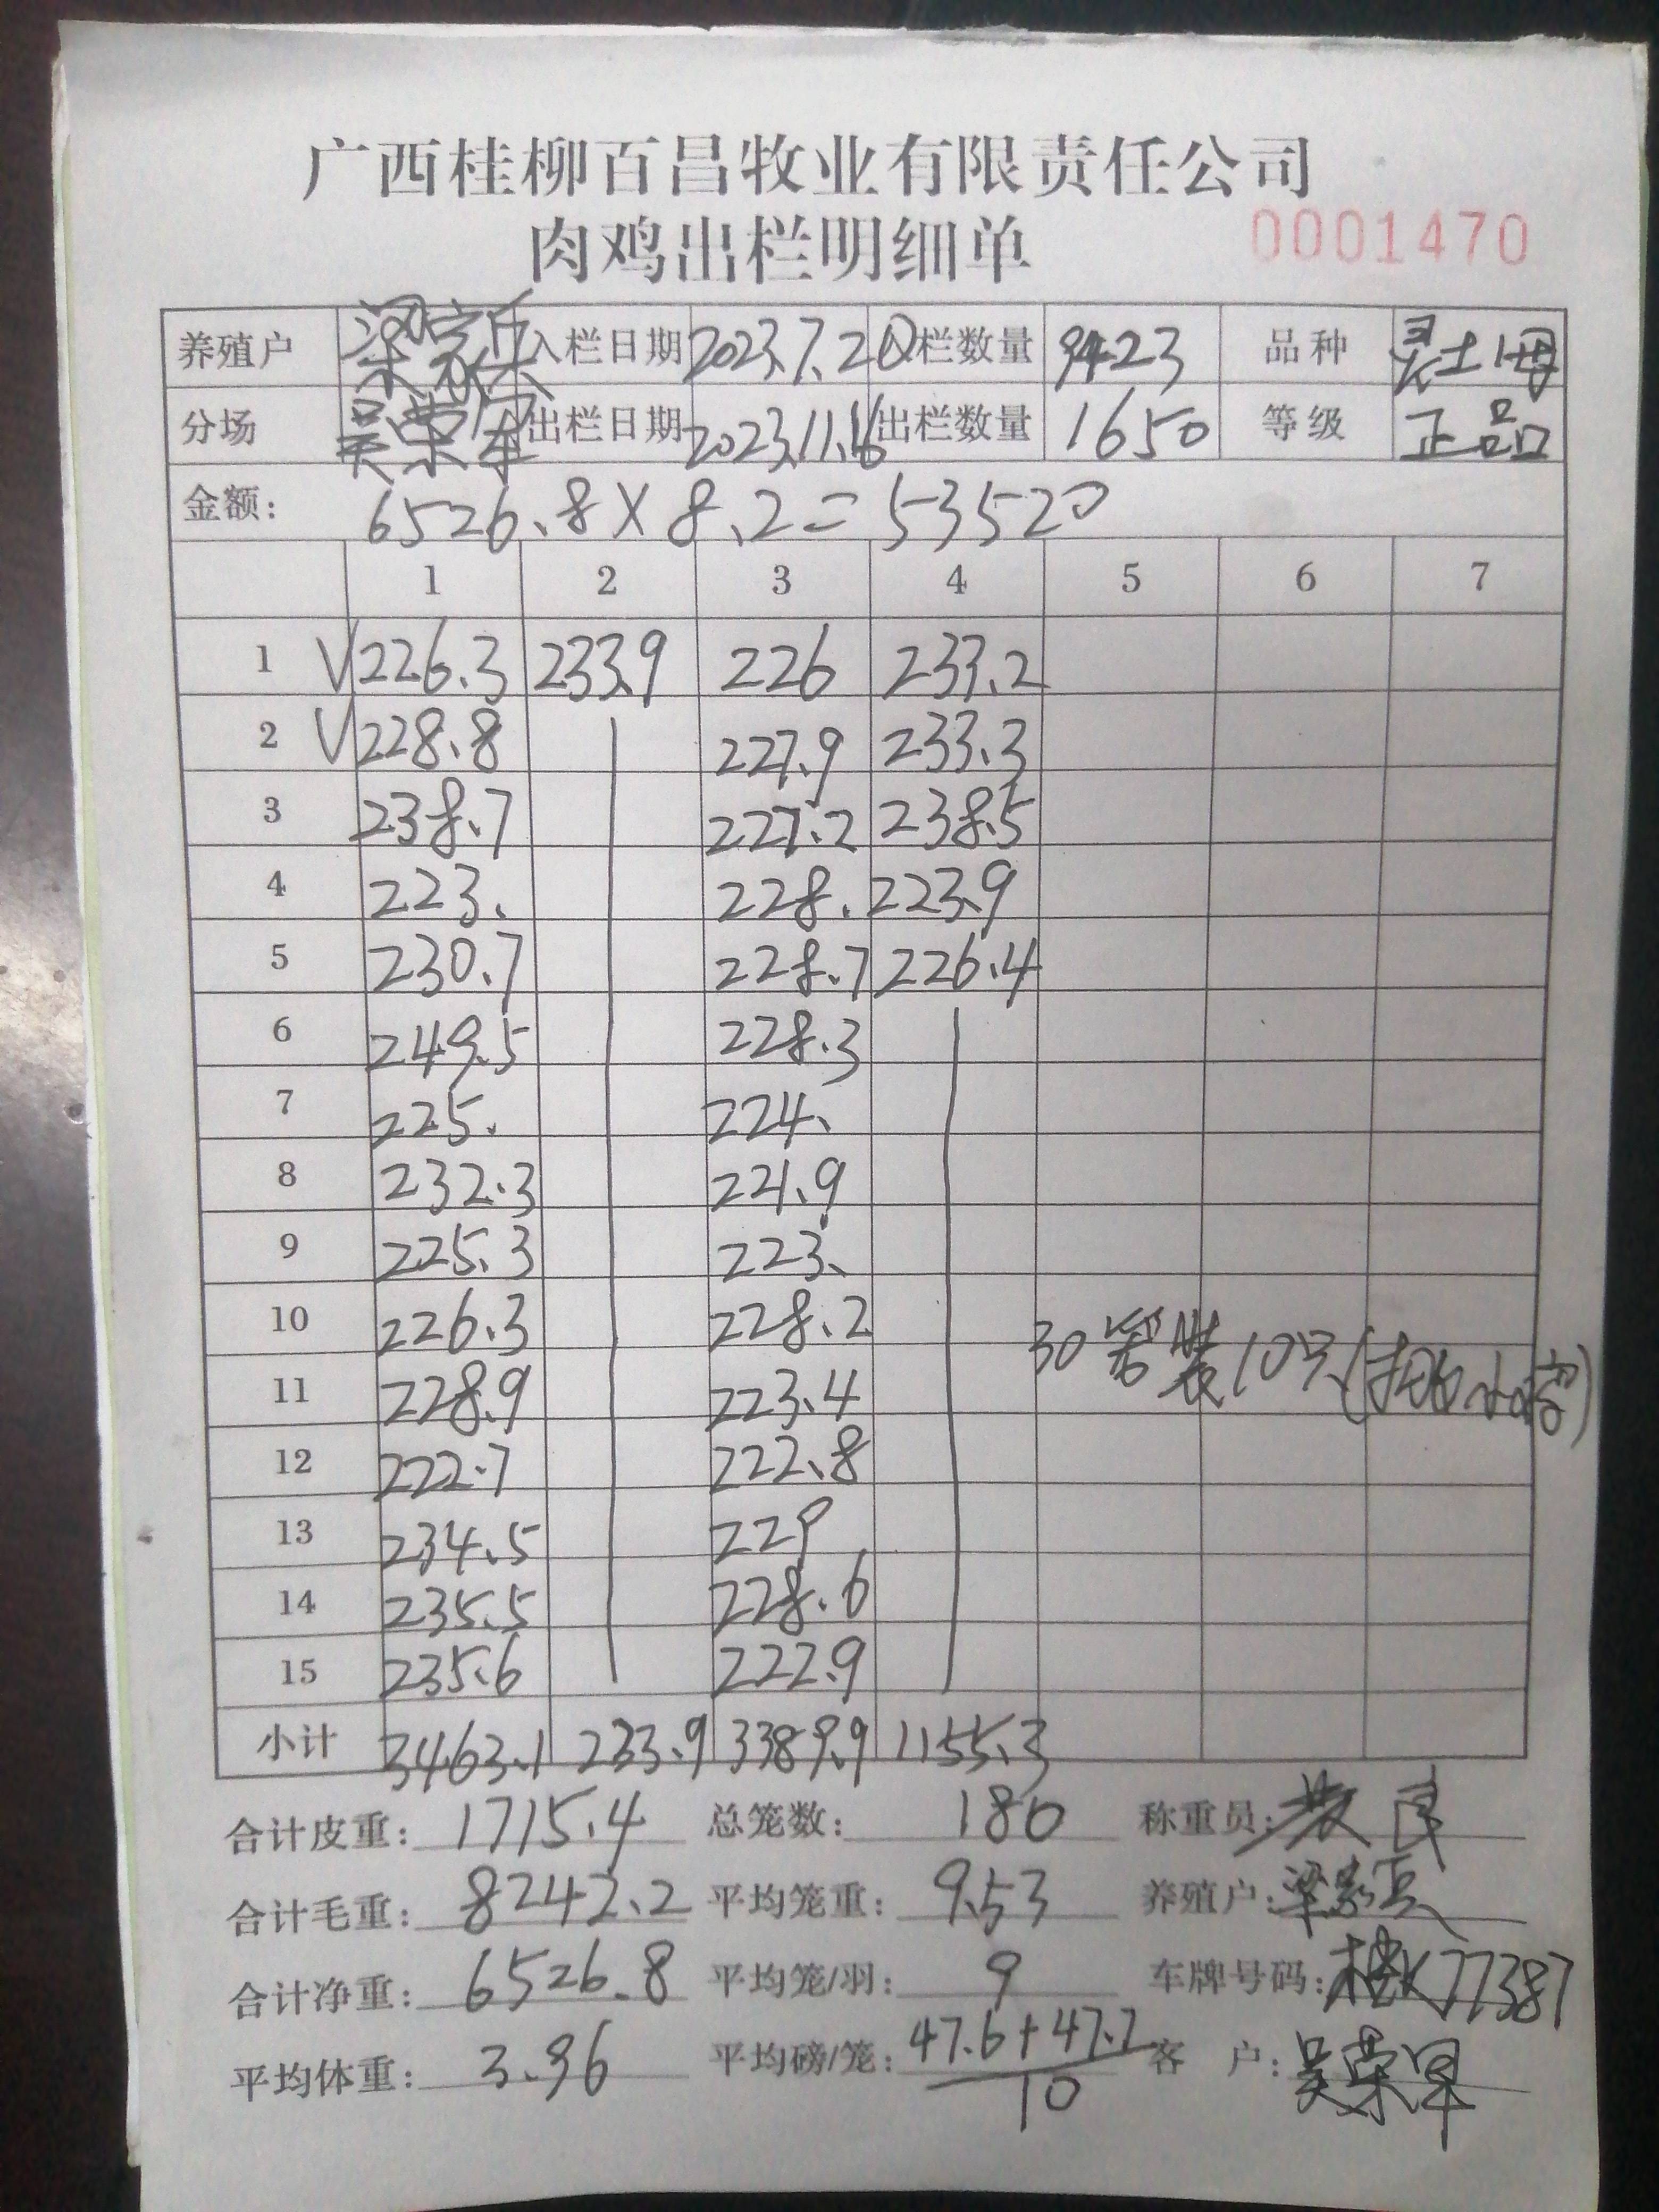 广西桂柳百昌牧业有限责任公司
肉鸡出栏明细单 0001470
养殖户 入栏日期 2023.7.2 入栏数量 9423 品种 灵土母
分场 吴荣军 出栏日期 2023.11.16 出栏数量 1650 等级 正品
金额: 6526.8 X 8.2 = 53520
1 2 3 4 5 6 7
1 √ 226.3 233.9 226 233.2
2 √ 228.8 227.9 233.3
3 238.7 227.2 238.5
4 223. 228. 223.9
5 230.7 228.7 226.4
6 249.5 228.3
7 225. 224.
8 232.3 221.9
9 225.3 223.
10 226.3 228.2
30 装10只
11 228.9 223.4
12 222.7 222.8
13 234.5 229
14 235.5 228.6
15 235.6 222.9
小计 3463.1 233.9 3389.9 1155.3
合计皮重: 1715.4 总笼数: 180 称重员:
合计毛重: 8242.2 平均笼重: 9.53 养殖户:
合计净重: 6526.8 平均笼/羽: 9 车牌号码: 桂K77387
平均体重: 3.96 平均磅/笼: 47.6+47.7 客 户:
10